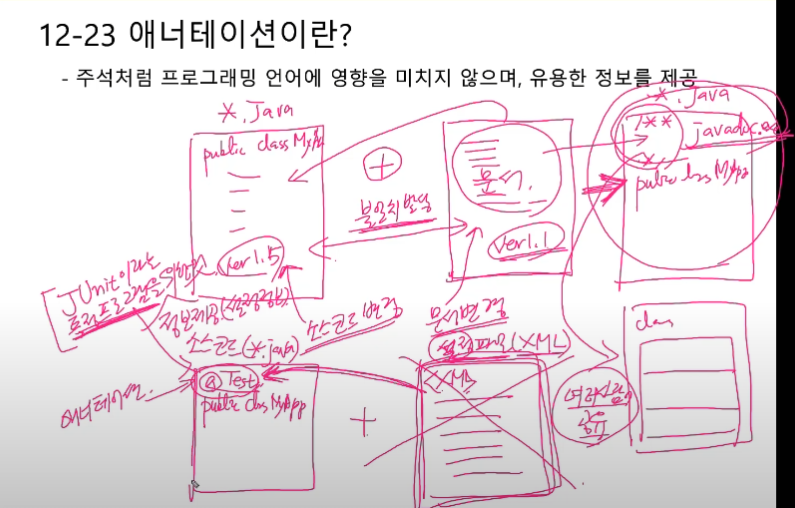 12-23 애너테이션이란?
- 주석처럼 프로그래밍 언어에 영향을 미치지 않으며, 유용한 정보를 제공
*.Java
public class MyApp
ver1.5
+
불일치 발생
문서
ver1.1
*.java
/**
javadoc.exe
*/
public class MyApp
[JUnit이라는
특정프로그램을 위한
정보제공(설정정보)
소스코드(*.java)
소스코드 변경
문서변경
설정파일(XML)
애너테이션
@Test
public class MyApp
+
<XML>
class
여러사람